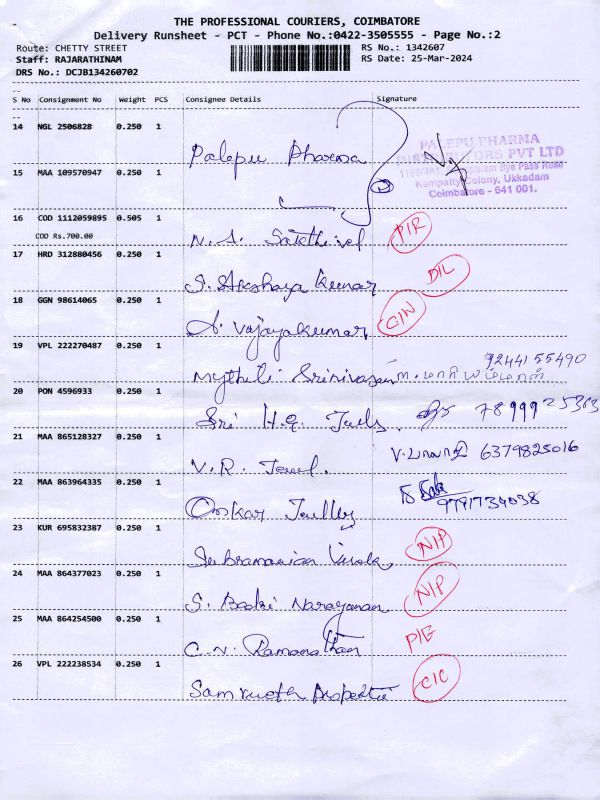 THE PROFESSIONAL COURIERS, COIMBATORE
Delivery Runsheet - PCT - Phone No.:0422-3505555 - Page No.:2
Route: CHETTY STREET RS No.: 1342607
Staff: RAJARATHINAM RS Date: 25-Mar-2024
DRS No.: DCJB134260702
S No Consignment No Weight PCS Consignee Details Signature
14 NGL 2506828 0.250 1
Palepu Pharma
PALEPU PHARMA
DISTRIBUTORS PVT LTD
Bye Pass Road
Kempatty Colony, Ukkadam
Coimbatore - 641 001.
15 MAA 109570947 0.250 1
16 COD 1112059895 0.505 1
COD Rs.700.00
N. S. Sakthivel PIR
17 HRD 312880456 0.250 1
S. Akshaya Kumar DIL
18 GGN 98614065 0.250 1
A. Vajayakumar CIN
19 VPL 222270487 0.250 1
9244155490
Mythili Srinivasan
20 PON 4596933 0.250 1
Sri H.Q. 7899925363
21 MAA 865128327 0.250 1
V.R. Jewel. 6379825016
22 MAA 863964335 0.250 1
Omkar 9791734038
23 KUR 695832387 0.250 1
Subramanian NIP
24 MAA 864377023 0.250 1
S. Badri Narayanan NIP
25 MAA 864254500 0.250 1
C.N. Ramanathan PIE
26 VPL 222238534 0.250 1
CIC